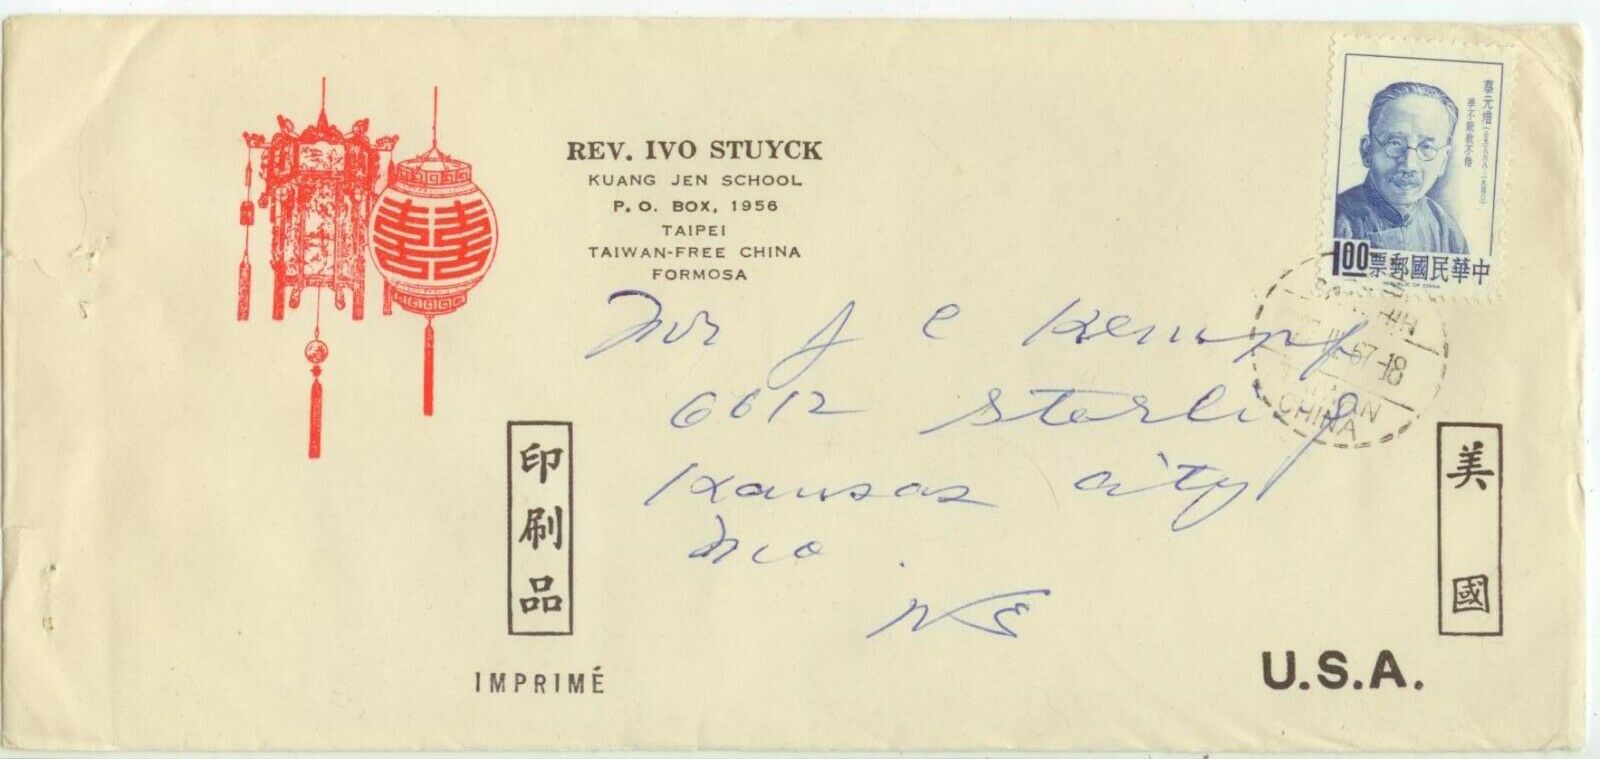 REV. IVO STUYCK
KUANG JEN SCHOOL
P. O. BOX, 1956
TAIPEI
TAIWAN-FREE CHINA
FORMOSA
蔡元培
學不厭教不倦
1.00 票郵國民華中
REPUBLIC OF CHINA
57-18
TAIWAN
CHINA
Mr J C Kempf
6612 Sterling
Kansas City
Mo.
印刷品
IMPRIMÉ
美國
U.S.A.